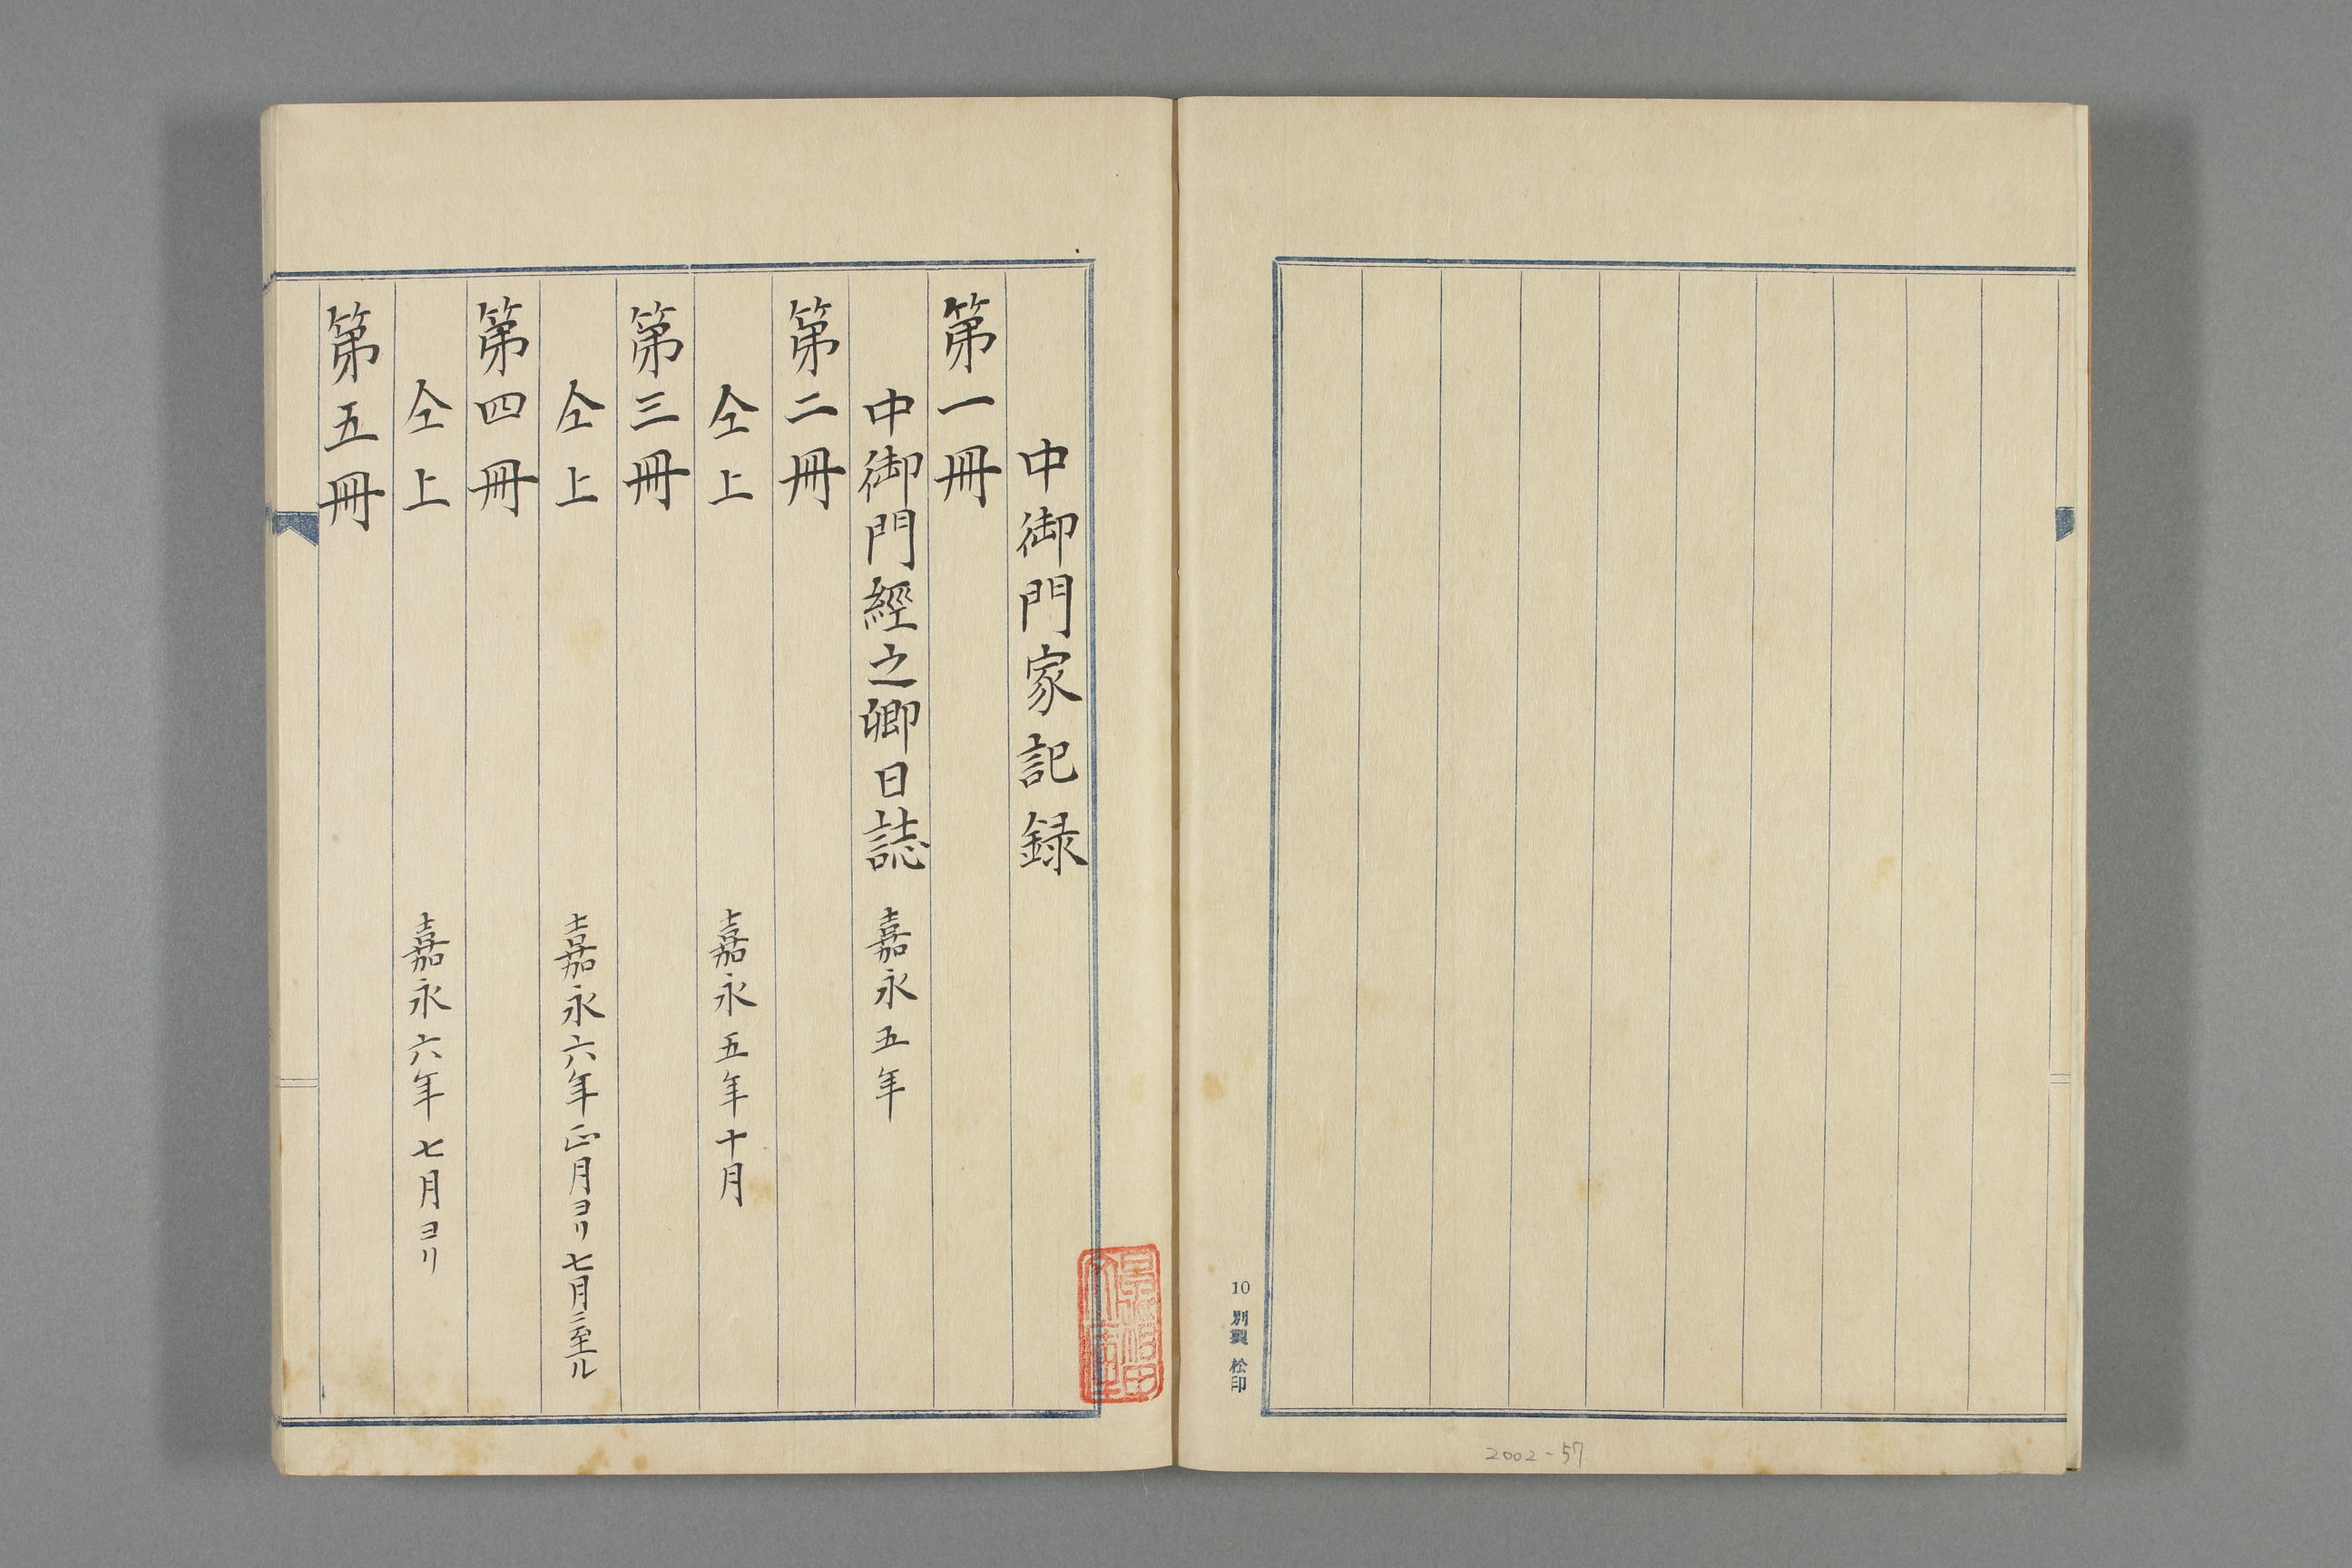 10 別製 松印
2002-57
中御門家記録
第一冊
中御門經之卿日誌 嘉永五年
第二冊
仝上 嘉永五年十月
第三冊
仝上 嘉永六年正月ヨリ七月ニ至ル
第四冊
仝上 嘉永六年七月ヨリ
第五冊